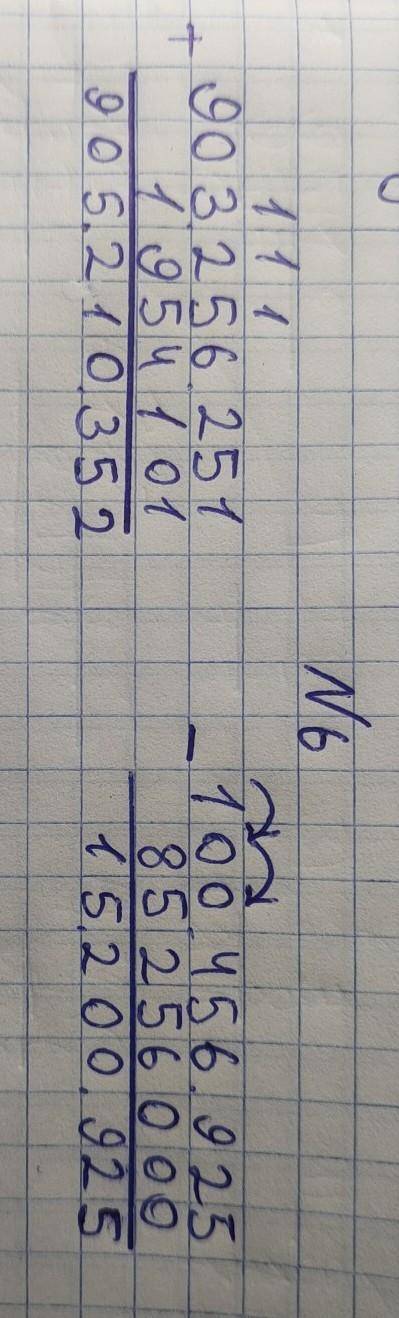 N6
1 1 1
+ 903.256.251
1954101
905.210.352
- 100.456.925
85256000
15.200.925